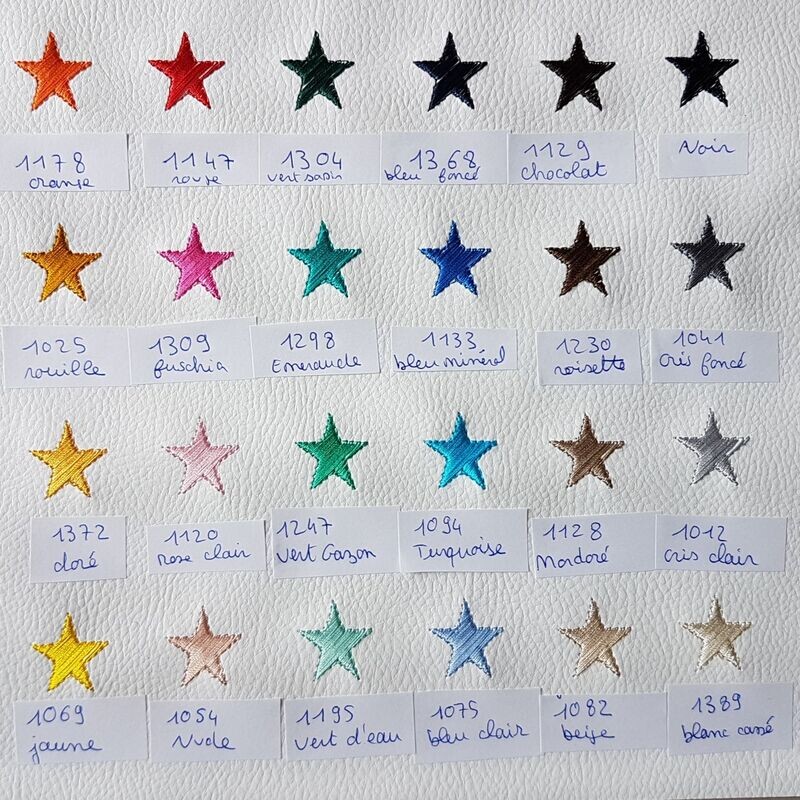 1178
orange
1147
rouge
1304
vert sapin
1368
bleu foncé
1129
chocolat
Noir
1025
rouille
1309
fuschia
1298
Emeraude
1133
bleu minéral
1230
noisette
1041
Gris foncé
1372
doré
1120
rose clair
1247
Vert Gazon
1094
Turquoise
1128
Mordoré
1012
Gris clair
1069
jaune
1054
Nude
1195
Vert d'eau
1075
bleu clair
1082
beige
1389
blanc cassé